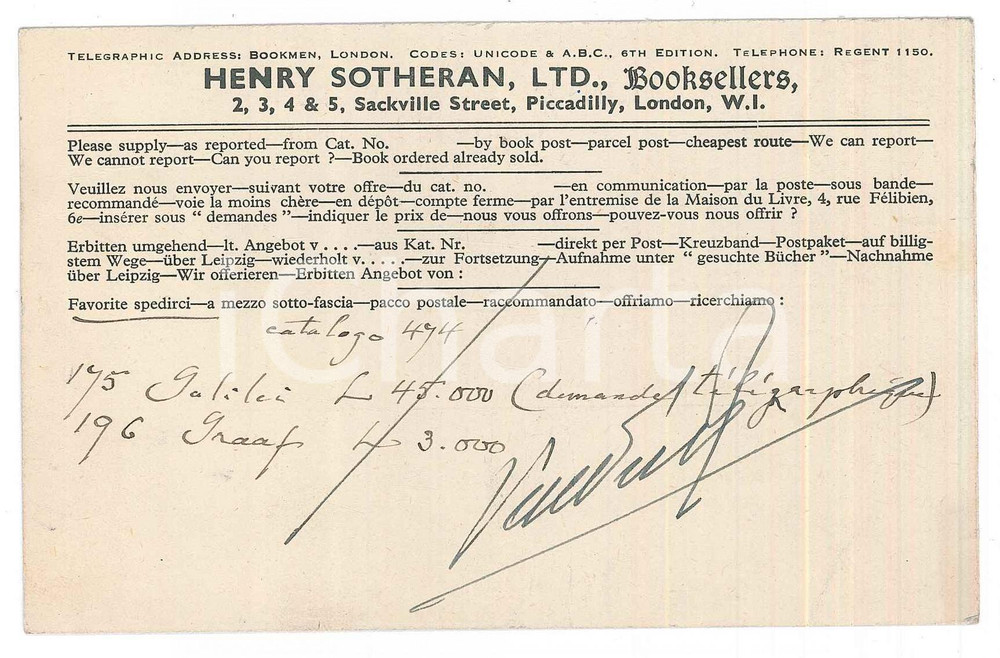 TELEGRAPHIC ADDRESS: BOOKMEN, LONDON. CODES: UNICODE & A.B.C., 6TH EDITION. TELEPHONE: REGENT 1150.
HENRY SOTHERAN, LTD., Booksellers,
2, 3, 4 & 5, Sackville Street, Piccadilly, London, W.1.
Please supply—as reported—from Cat. No. —by book post—parcel post—cheapest route—We can report—
We cannot report—Can you report ?—Book ordered already sold.
Veuillez nous envoyer—suivant votre offre—du cat. no. —en communication—par la poste—sous bande—
recommandé—voie la moins chère—en dépôt—compte ferme—par l'entremise de la Maison du Livre, 4, rue Félibien,
6e—insérer sous “ demandes ”—indiquer le prix de—nous vous offrons—pouvez-vous nous offrir ?
Erbitten umgehend—lt. Angebot v . . . .—aus Kat. Nr. —direkt per Post—Kreuzband—Postpaket—auf billig-
stem Wege—über Leipzig—wiederholt v. . . . .—zur Fortsetzung—Aufnahme unter “ gesuchte Bücher ”—Nachnahme
über Leipzig—Wir offerieren—Erbitten Angebot von :
Favorite spedirci—a mezzo sotto-fascia—pacco postale—raccommandato—offriamo—ricerchiamo :
catalogo 494
iCharta
175 Galilei L 45.000 (demandé télégraphique)
196 Graaf L 3.000